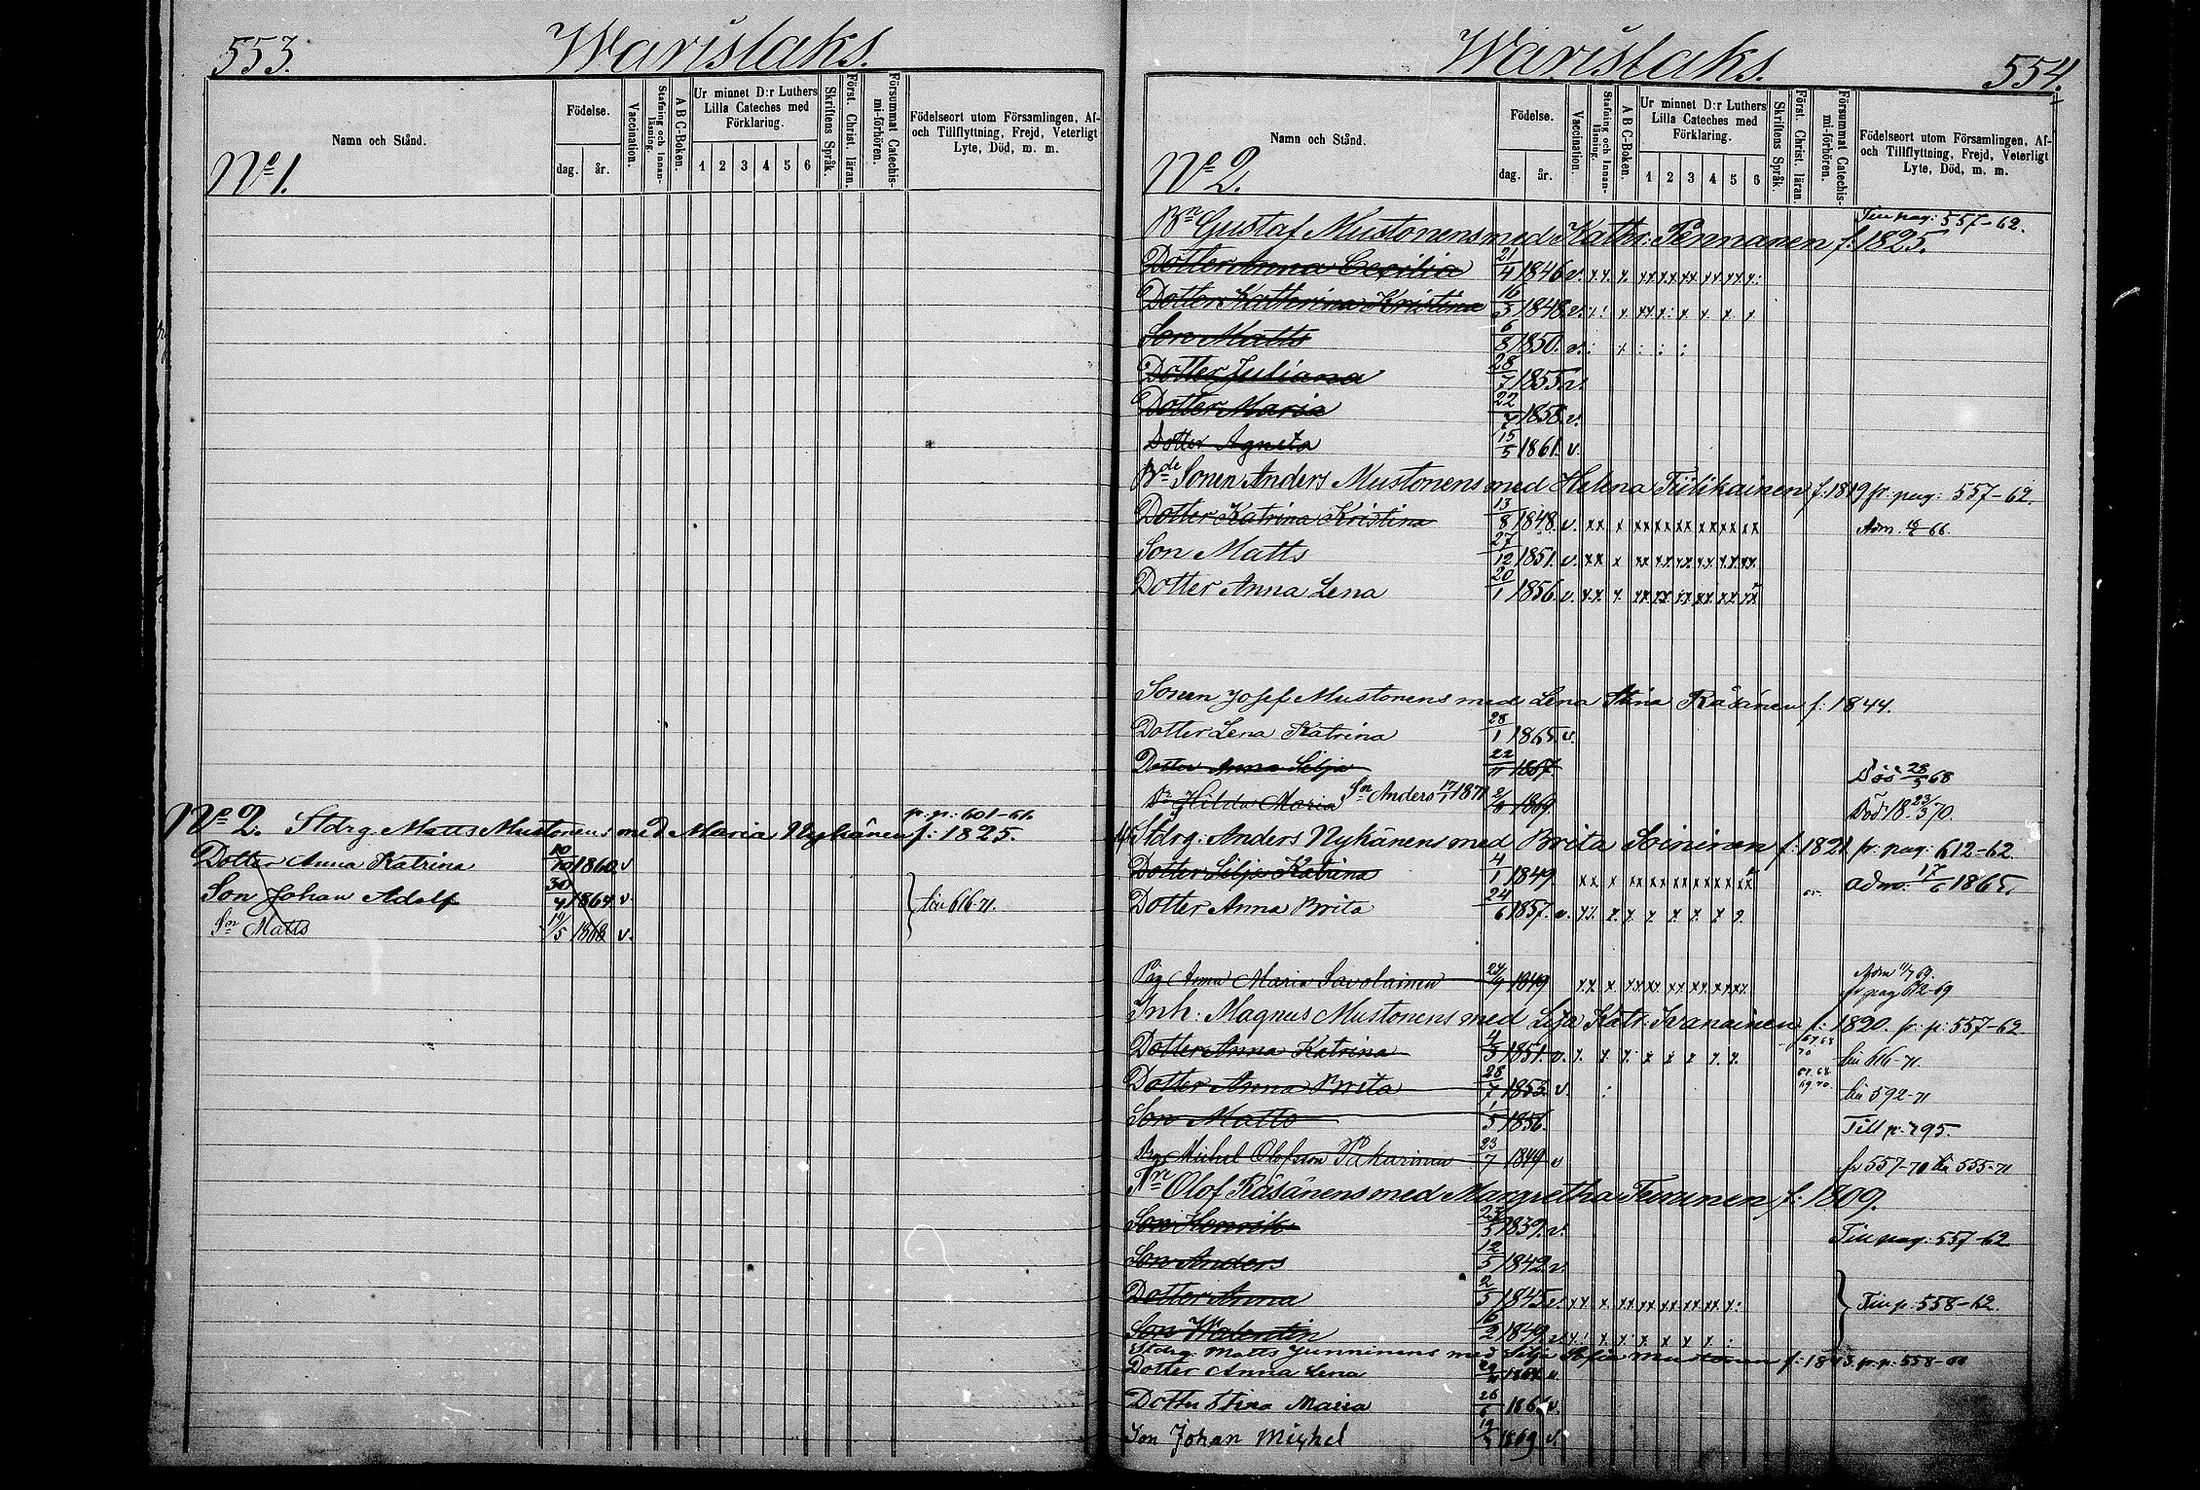 553. Waristaks.
Namn och Stånd.
Födelse.
dag. år.
Vaccination.
Stafning och Innanläsning.
A B C-Boken.
Ur minnet D:r Luthers Lilla Cateches med Förklaring.
1 2 3 4 5 6
Skriftens Språk.
Först. Christ. läran.
Försummat Catechismi-förhören.
Födelseort utom Församlingen, Af- och Tillflyttning, Frejd, Veterligt Lyte, Död, m. m.
No 1.
No 2. Stdrg. Matts Mustonens med Maria Nykänen f: 1825. fr. p: 601-66
Dotter Anna Katrina 10/10 1860 v
Son Johan Adolf 30/4 1864 v
Sn Matts 19/5 1868 v. } till 616-71.
Waristaks. 554.
Namn och Stånd.
Födelse.
dag. år.
Vaccination.
Stafning och Innanläsning.
A B C-Boken.
Ur minnet D:r Luthers Lilla Cateches med Förklaring.
1 2 3 4 5 6
Skriftens Språk.
Först. Christ. läran.
Försummat Catechismi-förhören.
Födelseort utom Församlingen, Af- och Tillflyttning, Frejd, Veterligt Lyte, Död, m. m.
No 2.
Bn Gustaf Mustonens med Kathr: Pennanen f: 1825. Till pag: 557-62.
Dotter Anna Cecilia 21/4 1846 v.
Dotter Katherina Kristina 16/3 1848 v.
Son Matts 6/8 1850. v.
Dotter Juliana 28/7 1855 v.
Dotter Maria 22/7 1858. v.
Dotter Agneta 15/5 1861. v.
Bde Sonen Anders Mustonens med Helena Tiilikainen f: 1819 fr. pag: 557-62.
Dotter Katrina Kristina 13/8 1848. v. Adm. 66.
Son Matts 27/12 1851. v.
Dotter Anna Lena 20/1 1856. v.
Sonen Josef Mustonens med Lena Stina Räsänen f: 1844.
Dotter Lena Katrina 28/1 1865. v.
Dotter Anna Silja 22/11 1867 Död 28/5 68
Dr Hilda Maria 1869 Sn Anders 17/1 1871 Död 18 23/3 70.
Stdrg: Anders Nykänens med Brita Soininen f: 1821 fr: pag: 612-62.
Dotter Silja Katrina 4/1 1849 adm: 17/6 1865.
Dotter Anna Brita 24/6 1857. v.
Pig Anna Maria Savolainen 24/9 1849 Adm 69. fr pag 612-69
Inh: Magnus Mustonens med Lisa Katr: Ivanainen f: 1820. fr: p: 557-62
Dotter Anna Katrina 4/3 1851. v. till 616-71.
Dotter Anna Brita 28/7 1853. v. till 592-71
Son Matts 1/5 1856. Till p. 795.
Drg Michel Olofsson Pakarinen 23/7 1849 v fr 557-70 till 555-71
Bn Olof Räsänens med Margretha Temmonen f: 1809.
Son Henrik 1839. v. Till pag: 557-62
Son Anders 12/5 1842. v.
Dotter Anna 2/5 1845. v. } Till p: 558-62.
Son Walentin 16/2 1849. v.
Stdrg: Matts Junninens med Silja Sofia Mustonen f: 1843. fr: p: 558-
Dotter Anna Lena v.
Dotter Stina Maria 26/6 186 v.
Son Johan Michel 1869 v.